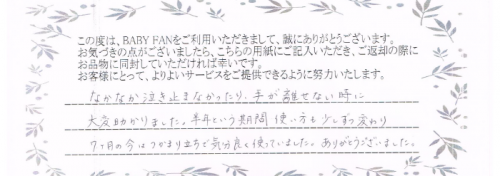 この度は、BABY FANをご利用いただきまして、誠にありがとうございます。
お気づきの点がございましたら、こちらの用紙にご記入いただき、ご返却の際に
お品物に同封していただければ幸いです。
お客様にとって、よりよいサービスをご提供できるように努力いたします。
なかなか泣き止まなかったり、手が離せない時に
大変助かりました。半年という期間 使い方も少しずつ変わり
7ヶ月の今はつかまり立ちで気分良く使っていました。ありがとうございました。